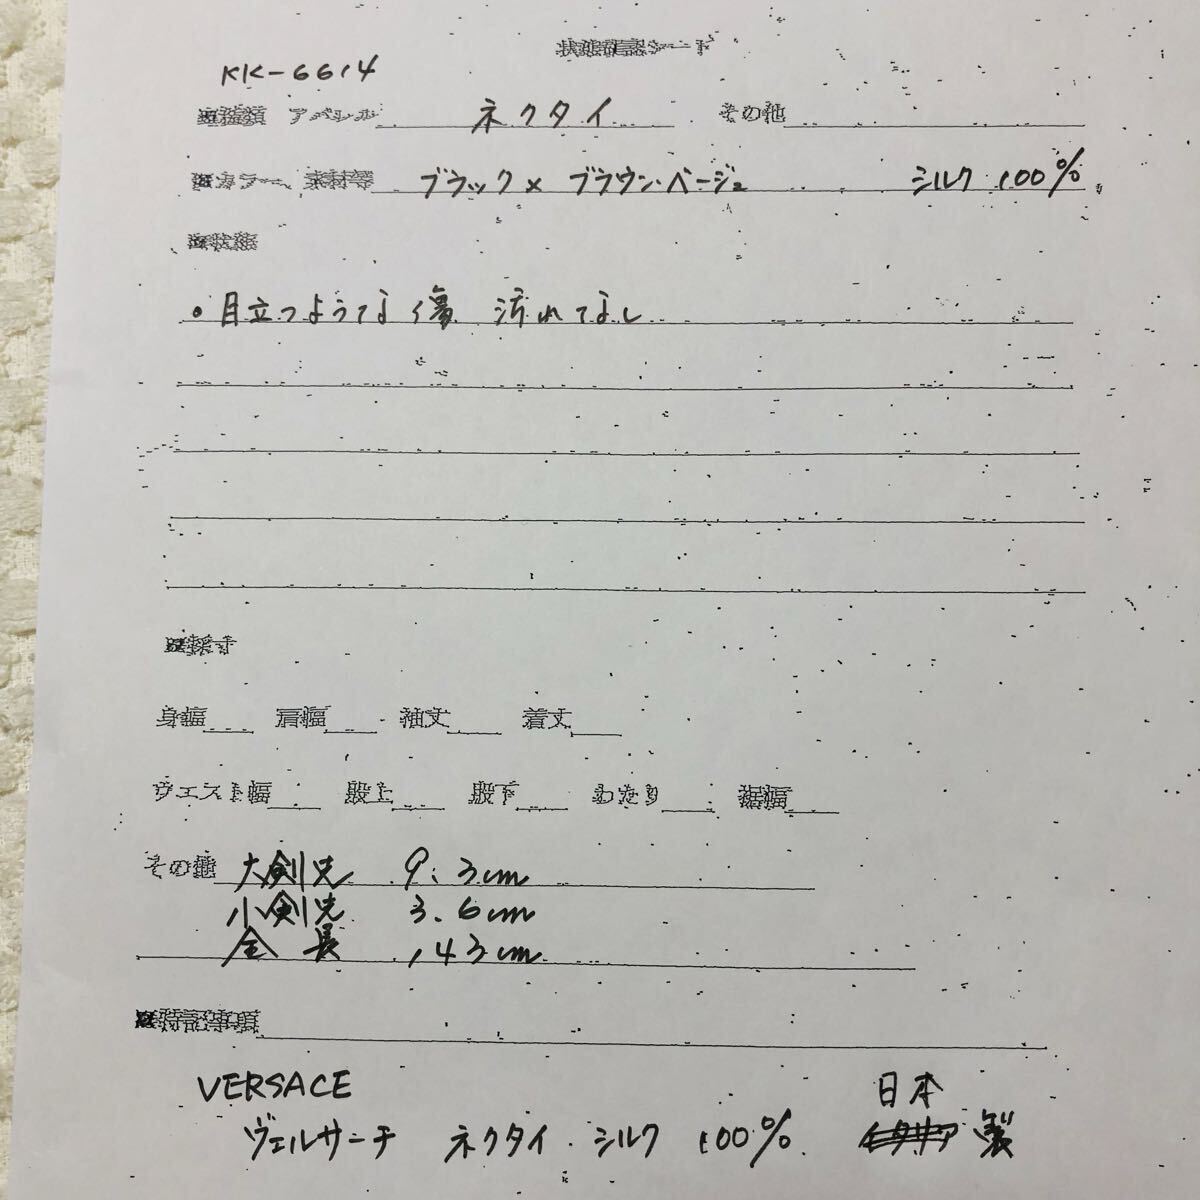 状態確認シート
KK-6614
※種類 アパレル ネクタイ その他
※カラー、素材等 ブラック×ブラウン・ベージュ シルク 100%
※状態
・目立つような傷 汚れなし
※採寸
身幅 肩幅 袖丈 着丈
ウエスト幅 股上 股下 わたり 裾幅
その他 大剣先 9.3cm
小剣先 3.6cm
全長 143cm
※特記事項
VERSACE 日本
ヴェルサーチ ネクタイ・シルク 100% イタリア 製